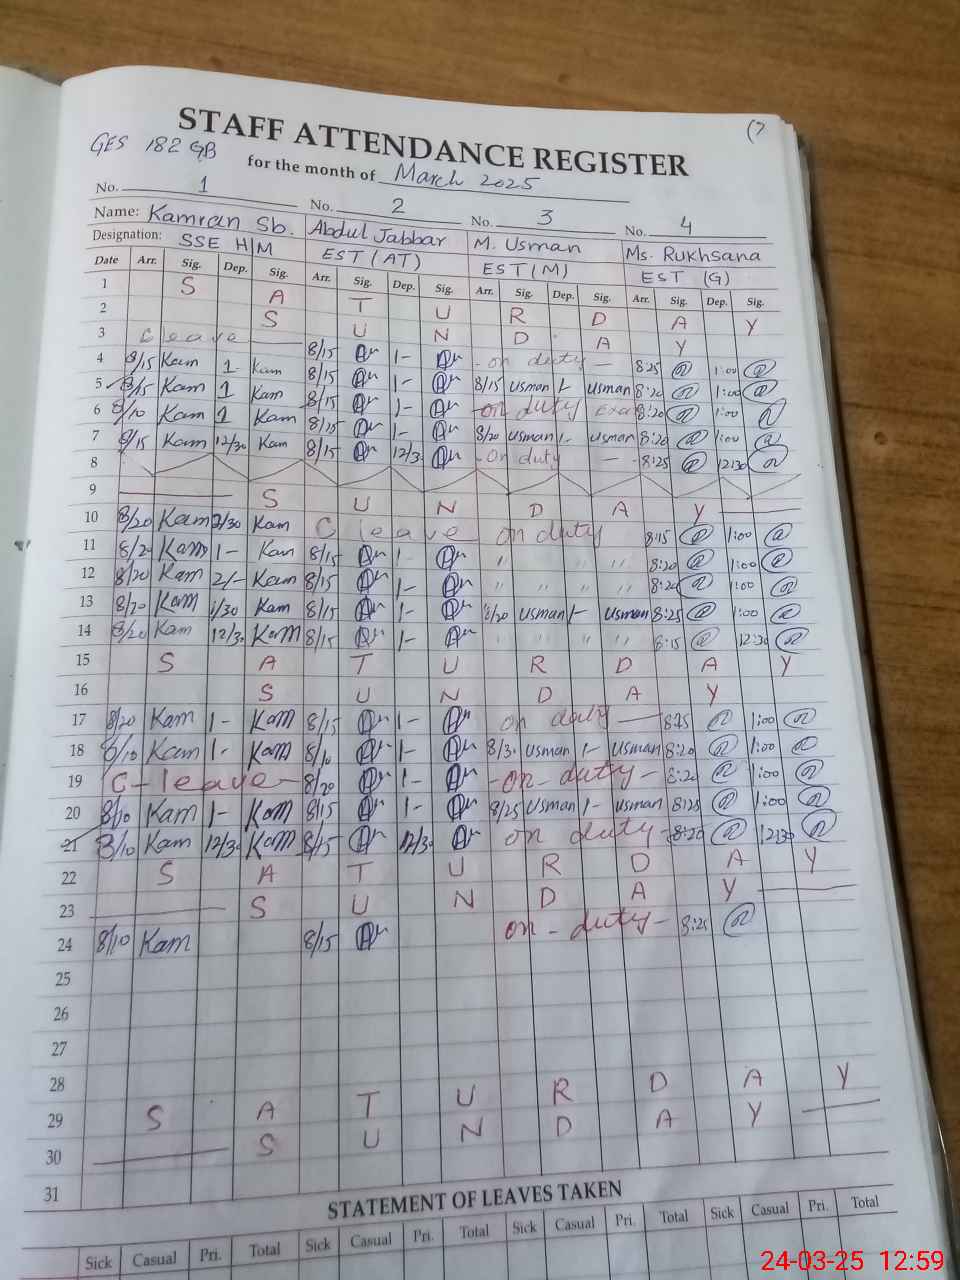 (7
STAFF ATTENDANCE REGISTER
GES 182 GB
for the month of March 2025
No. 1 No. 2 No. 3 No. 4
Name: Kamran Sb. Abdul Jabbar M. Usman Ms. Rukhsana
Designation: SSE H/M EST (AT) EST (M) EST (G)
Date Arr. Sig. Dep. Sig. Arr. Sig. Dep. Sig. Arr. Sig. Dep. Sig. Arr. Sig. Dep. Sig.
1 S A T U R D A Y
2 S U N D A Y
3 C leave 8/15 1- on duty 8:25 1:00
4 8/15 Kam 1 Kam 8/15 1- 8/15 usman 1- usman 8:20 1:00
5 8/15 Kam 1 Kam 8/15 1- on duty 8:20 1:00
6 8/10 Kam 1 Kam 1- 8/20 usman 1- usman 8:20 1:00
7 8/15 Kam 12/30 Kam 8/15 12/30 - on duty - 8:25 12:30
8
9 S U N D A Y
10 8/20 Kam Kam C leave on duty 8:15 1:00
11 8/20 Kam 1- Kam 8/15 1- " " " 8:20 1:00
12 8/20 Kam 2/- Kam 8/15 1- " " " " 8:20 1:00
13 8/20 Kam 1/30 Kam 8/15 1- 8/20 usman 1- usman 8:25 1:00
14 8/20 Kam 12/30 Kam 8/15 1- " " " " 8:15 12:30
15 S A T U R D A Y
16 S U N D A Y
17 8/20 Kam 1- Kam 8/15 1- on duty 8:25 1:00
18 8/10 Kam 1- Kam 8/10 1- 8/30 usman 1- usman 8:20 1:00
19 C- leave - 8/20 1- - on - duty - 8:20 1:00
20 8/10 Kam 1- Kam 8/15 1- 8/25 usman 1- usman 8:25 1:00
21 8/10 Kam 12/30 Kam 8/15 12/30 on duty - 8:20 12:30
22 S A T U R D A Y
23 S U N D A Y
24 8/10 Kam 8/15 on - duty - 8:25
25
26
27
28
29 S A T U R D A Y
30 S U N D A Y
31
STATEMENT OF LEAVES TAKEN
Sick Casual Pri. Total Sick Casual Pri. Total Sick Casual Pri. Total Sick Casual Pri. Total
24-03-25 12:59